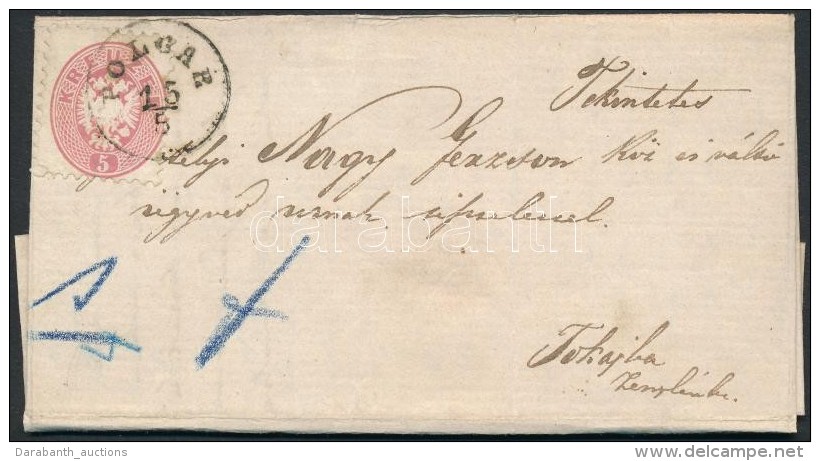 KREUZER
5
POLGAR
15
5
Tekintetes
Nagy Gerzson Köz és váltó
ügyvéd urnak tisztelettel.
Tokajba
Zemplénbe.
darabanth
Darabanth_auctions
www.delcampe.net